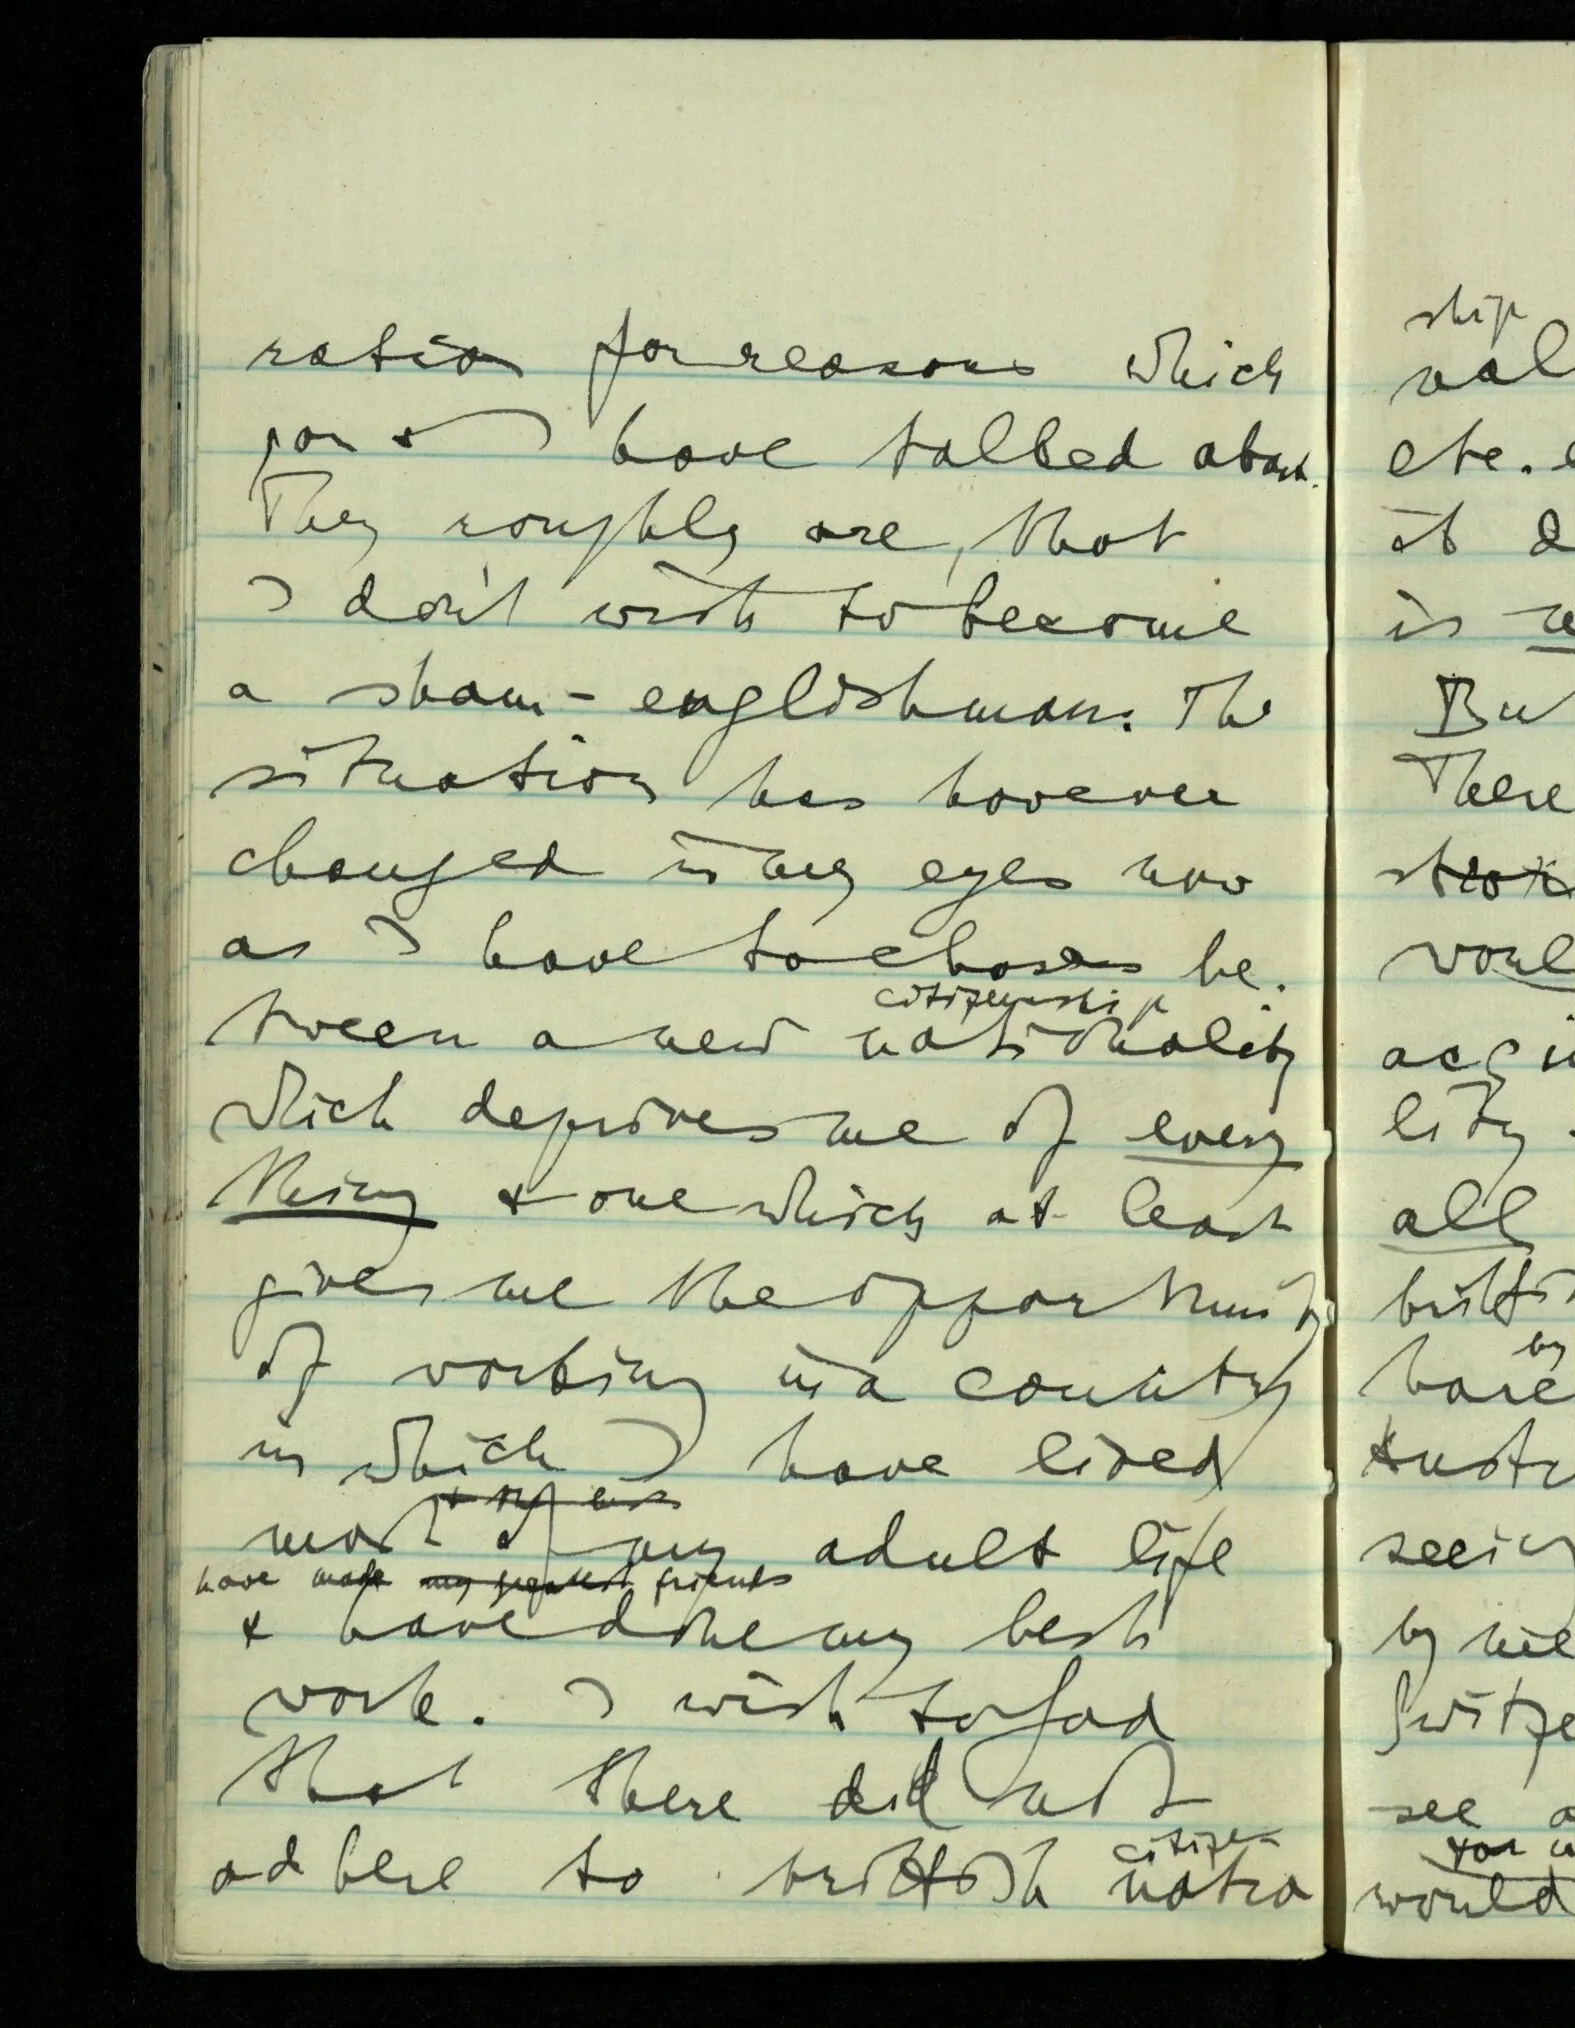 ration for reasons which
you & I have talked about.
They roughly are, that
I don't wish to become
a sham-englishman. The
situation has however
changed in my eyes now
as I have to choose be-
citizenship
tween a new nationality
which deprives me of every
thing & one which at least
gives me the opportunity
of working in a country
in which I have lived
& my
most of my adult life
have made my greatest friends
& have done my best
work. I wish to God
that there did not
citizen
adhere to brittish natio
ship
nal
etc.
it
is
But
There
would
lity
all
by
have
seeing
by
see
would